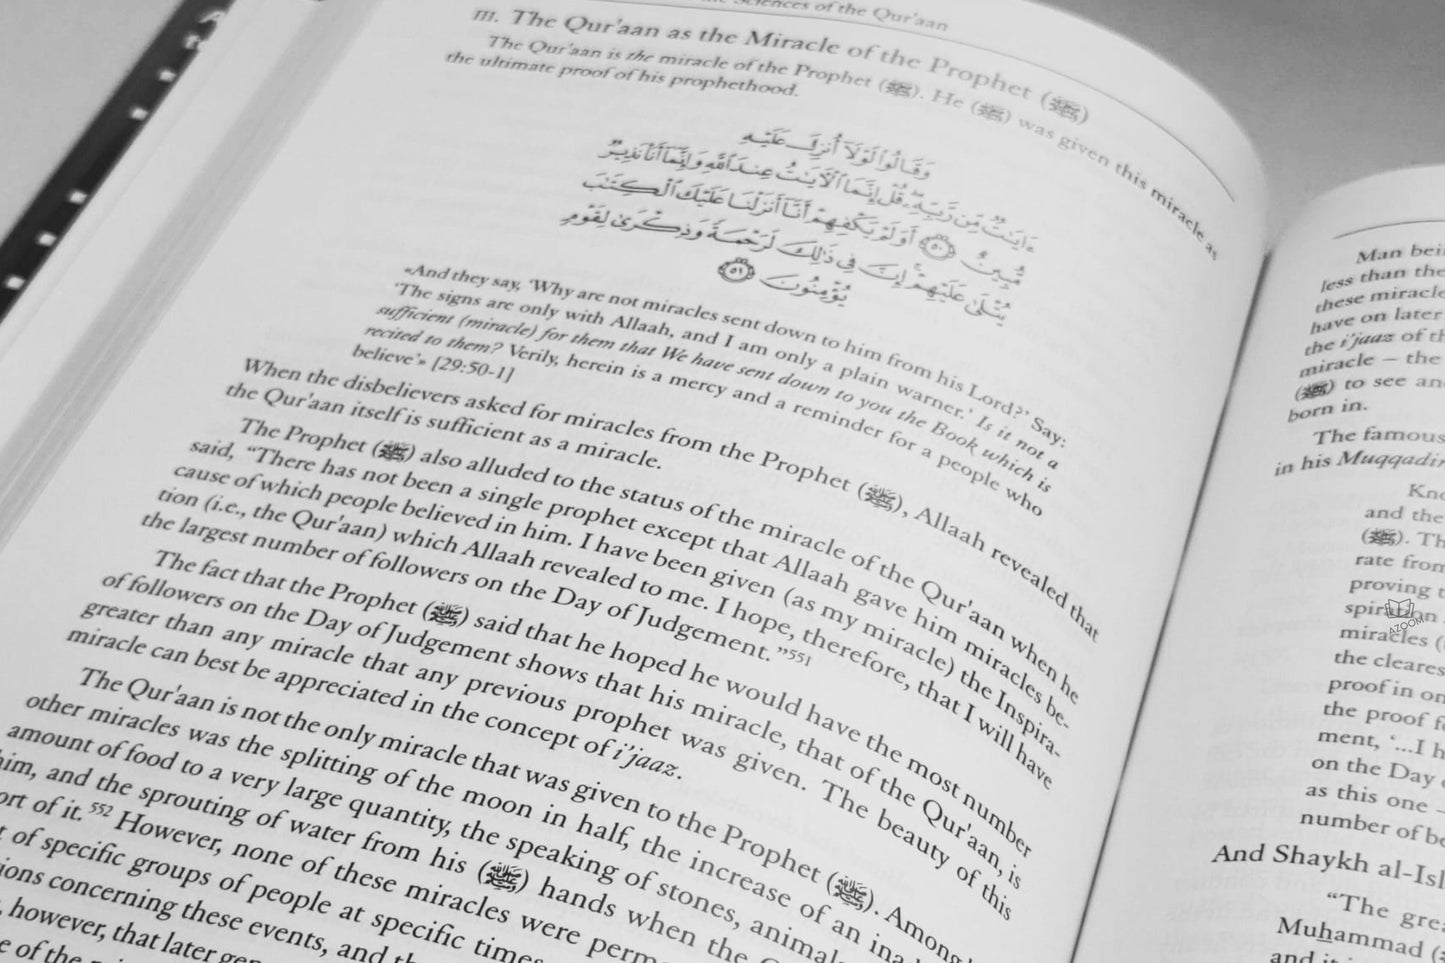 the Sciences of the Qur'aan
III. The Qur'aan as the Miracle of the Prophet (ﷺ)
The Qur'aan is the miracle of the Prophet (ﷺ). He (ﷺ) was given this miracle as
the ultimate proof of his prophethood.
وَقَالُوا۟ لَوْلَآ أُنزِلَ عَلَيْهِ
ءَايَٰتٌ مِّن رَّبِّهِۦ ۖ قُلْ إِنَّمَا ٱلْءَايَٰتُ عِندَ ٱللَّهِ وَإِنَّمَآ أَنَا۠ نَذِيرٌ
مُّبِينٌ ۝٥٠ أَوَلَمْ يَكْفِهِمْ أَنَّآ أَنزَلْنَا عَلَيْكَ ٱلْكِتَٰبَ
يُتْلَىٰ عَلَيْهِمْ ۚ إِنَّ فِى ذَٰلِكَ لَرَحْمَةً وَذِكْرَىٰ لِقَوْمٍ
يُؤْمِنُونَ ۝٥١
«And they say, 'Why are not miracles sent down to him from his Lord?' Say:
'The signs are only with Allaah, and I am only a plain warner.' Is it not a
sufficient (miracle) for them that We have sent down to you the Book which is
recited to them? Verily, herein is a mercy and a reminder for a people who
believe'» [29:50-1]
When the disbelievers asked for miracles from the Prophet (ﷺ), Allaah revealed that
the Qur'aan itself is sufficient as a miracle.
The Prophet (ﷺ) also alluded to the status of the miracle of the Qur'aan when he
said, "There has not been a single prophet except that Allaah gave him miracles be-
cause of which people believed in him. I have been given (as my miracle) the Inspira-
tion (i.e., the Qur'aan) which Allaah revealed to me. I hope, therefore, that I will have
the largest number of followers on the Day of Judgement."551
The fact that the Prophet (ﷺ) said that he hoped he would have the most number
of followers on the Day of Judgement shows that his miracle, that of the Qur'aan, is
greater than any miracle that any previous prophet was given. The beauty of this
miracle can best be appreciated in the concept of i'jaaz.
The Qur'aan is not the only miracle that was given to the Prophet (ﷺ). Among
other miracles was the splitting of the moon in half, the increase of an
amount of food to a very large quantity, the speaking of stones,
him, and the sprouting of water from his (ﷺ) hands when the
ort of it.552 However, none of these miracles were
of specific groups of people at specific times
ions concerning these events, and
, however, that later
e of the
Man bei
less than the
these miracle
have on later
the i'jaaz of th
miracle – the
(ﷺ) to see an
born in.
The famous
in his Muqqadin
Kno
and the
(ﷺ). Th
rate from
proving t
miracles (
the cleares
proof in on
the proof f
ment, '...I h
on the Day
as this one –
number of be
And Shaykh al-Isl
"The grea
Muhammad (
and it
AZOOM